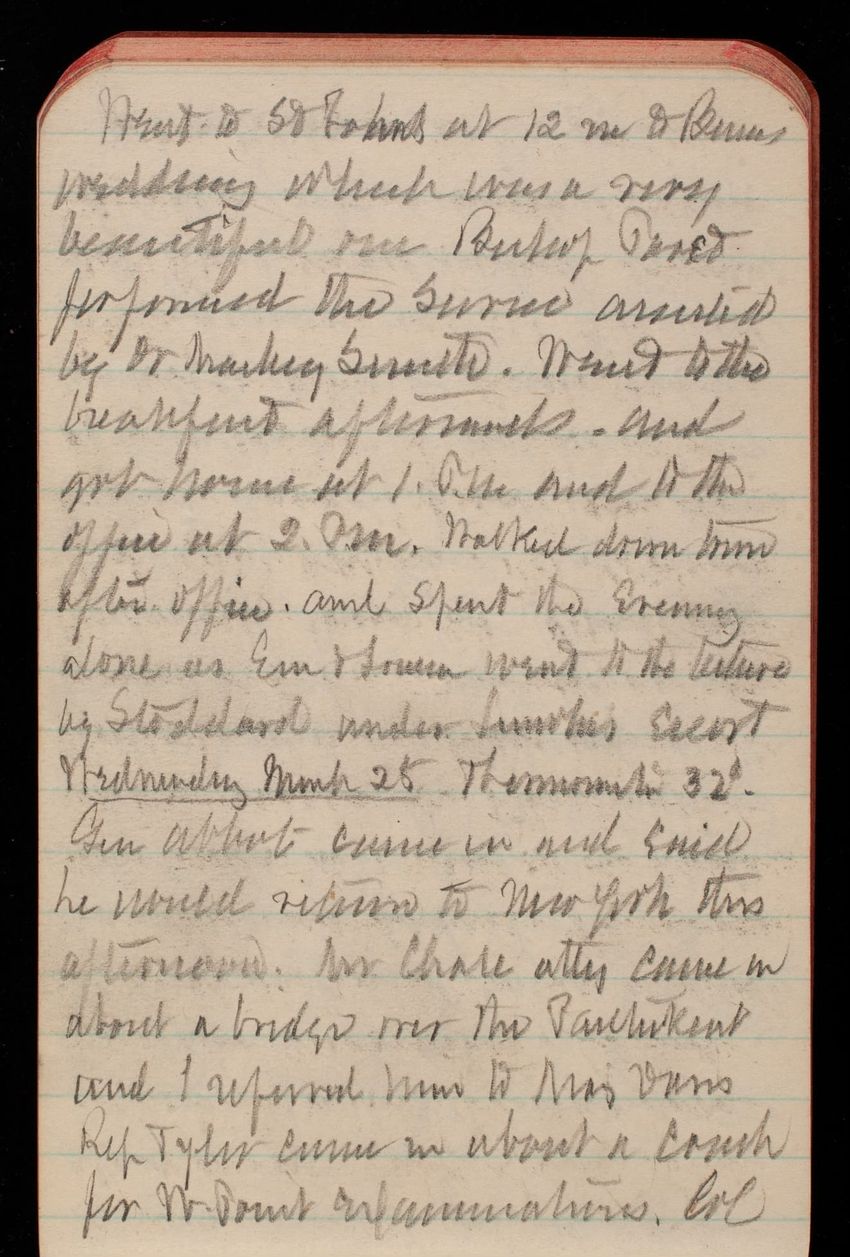 Went to St Johns at 12 m to
wedding which was a very
beautiful one Bishop Paret
performed the Service assisted
by Dr Mackey Smith. Went to the
breakfast afterwards. and
got home at 1. P.M. and to the
office at 2. P.m. Walked down town
after office. and spent the Evening
alone as Em & Louisa went to the lecture
by Stoddard under Escort
Wednesday March 25 Thermometer 32°.
Gen Abbot came in and said
he would return to New York this
afternoon. Mr Chase atty came in
about a bridge over the
and I referred him to Maj Davis
Rep Tyler came in about a coach
for W. Point Examinations. Col